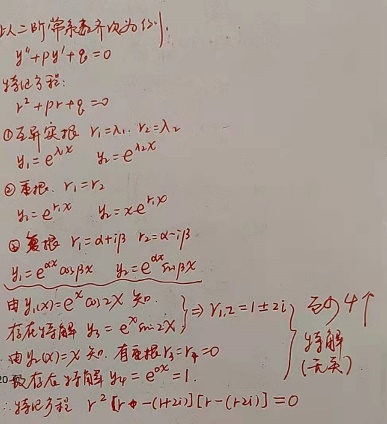 以二阶常系数齐次为例.
y''+py'+q=0
特征方程:
r²+pr+q=0
①互异实根 r₁=λ₁. r₂=λ₂
y₁=e^{λ₁x} y₂=e^{λ₂x}
②重根. r₁=r₂
y₁=e^{r₁x} y₂=xe^{r₁x}
③复根 r₁=α+iβ r₂=α-iβ
y₁=e^{αx}cosβx y₂=e^{αx}sinβx
由y₁(x)=e^x cos2x 知.
存在特解 y₃=e^x sin2x } ⇒ r₁,₂=1±2i
由y₂(x)=x 知. 有重根r₃=r₄=0
存在特解 y₄=e^{0x}=1.
至少4个
特解
(无关)
∴特征方程 r²[r-(1+2i)][r-(1-2i)]=0